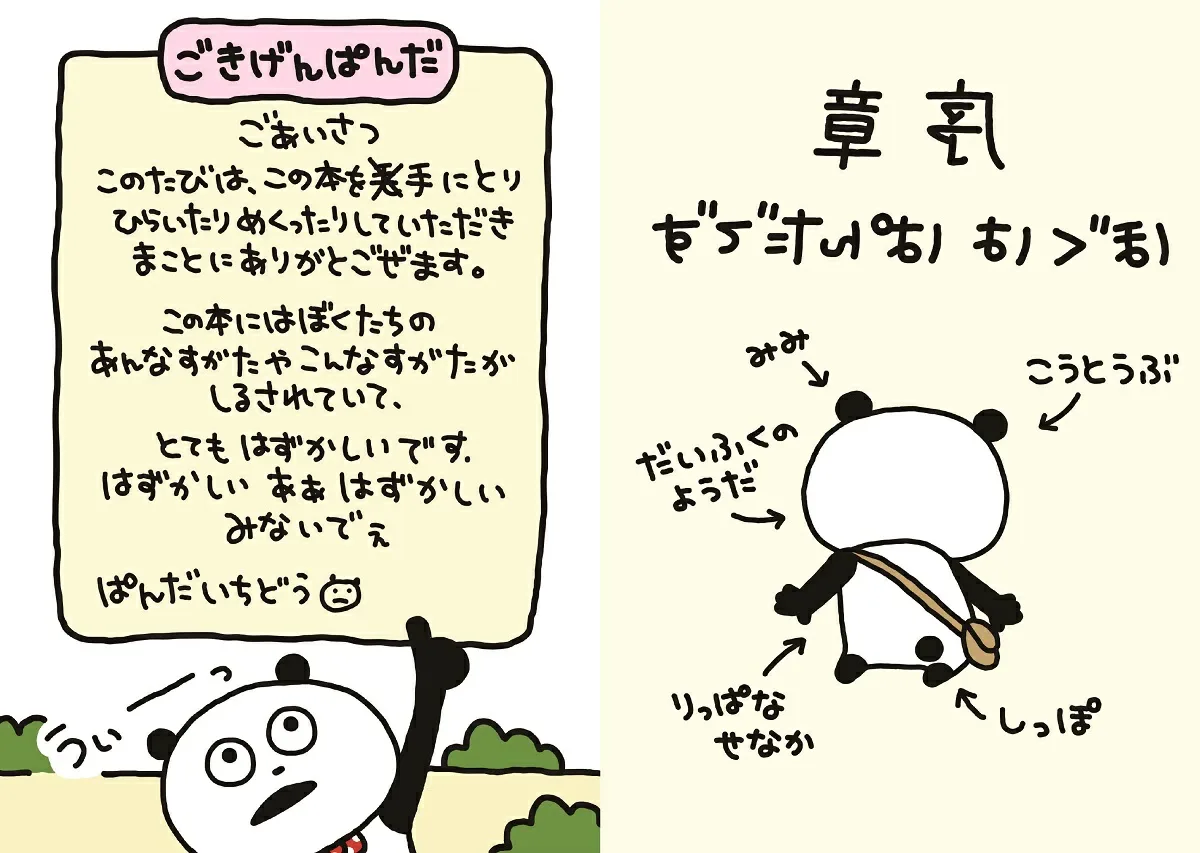 ごきげんぱんだ
ごあいさつ
このたびは、この本を手にとり
ひらいたりめくったりしていただき
まことにありがとごぜます。
この本にはぼくたちの
あんなすがたやこんなすがたが
しるされていて、
とても はずかしいです.
はずかしい ああ はずかしい
みないでぇ
ぱんだいちどう
うぃっ
序章
ぼくは ぱんだです
みみ
こうとうぶ
だいふくの
ようだ
りっぱな
せなか
しっぽ